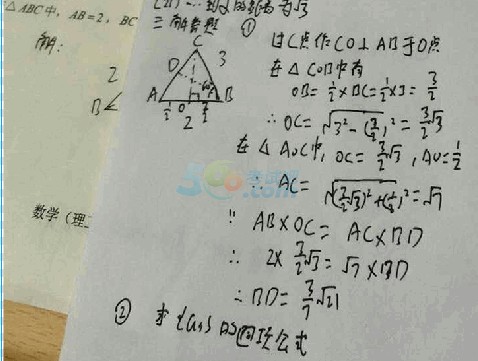 △ABC中，AB=2，BC
解：
2
B
数学（理
三 解答题 ①
C
D
3
A
O
B
2
过C点作CO⊥AB于O点
在△COB中有
OB=½×BC=½×3=3/2
∴OC=√3²-(3/2)²=3/2√3
在△AOC中，OC=3/2√3，AO=½
∴AC=√(3/2√3)²+(½)²=√7
∵AB×OC=AC×BD
∴2×3/2√3=√7×BD
∴BD=3/7√21
② 求{an}的通项公式